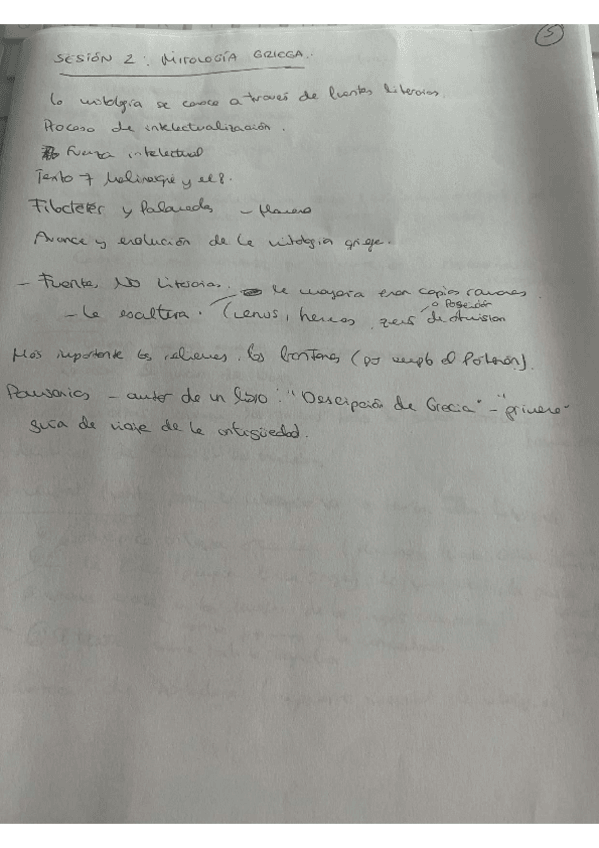 5
SESIÓN 2: MITOLOGÍA GRIEGA.
La mitología se conoce a través de fuentes literarias.
Proceso de intelectualización.
Fuerza intelectual
Texto 7 y el 8.
Filoctetes y Palamedes -
Avance y evolución de la mitología griega.
- Fuentes NO literarias. la mayoría eran copias romanas.
- La escultura. (Venus, hermes, zeus de
o Poseidón
Más importante los relieves, los frontones (por ejemplo el Partenón).
Pausanias - autor de un libro: "Descripción de Grecia" - "primera"
guía de viaje de la antigüedad.